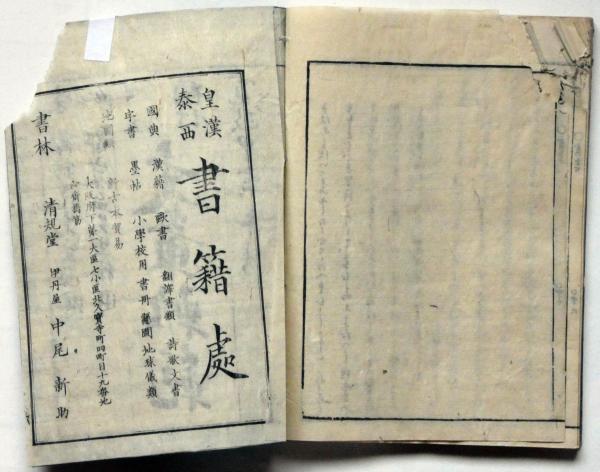 皇漢
泰西
書籍處
國典 漢籍 歐書 翻譯書類 詩歌文書
字書 墨帖 小學校用書冊 圖 地球儀類
新古本貿易
大阪府下第一大區七小區北久寶寺町四町目十九番地
書林 清規堂 伊丹屋 中尾新助